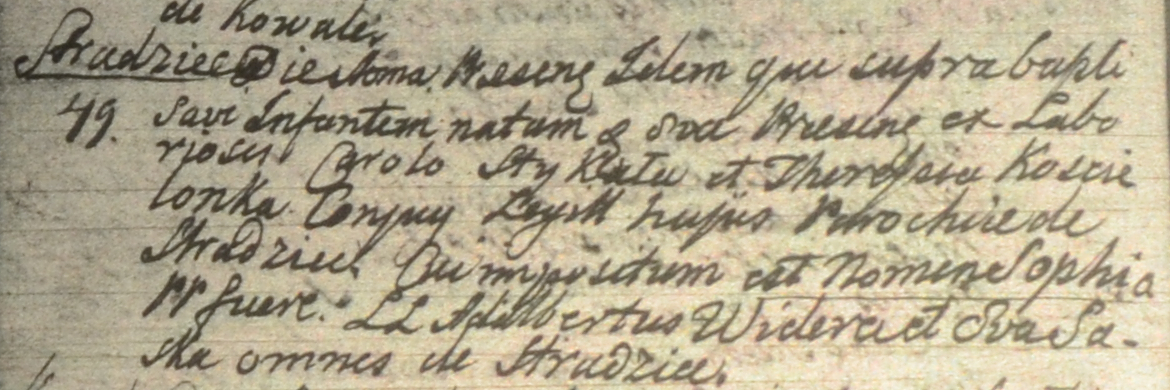 de Kowale.
Stradziec Die 8oma Preseng Idem qui supra bapti
49. savi Infantem natam 2 8va Preseng ex Labo
riosis Carolo Stykała et Theressia Koscie
lonka Conjug Legitt hujus Parochiæ de
Stradziec. Cui impositum est Nomen Sophia
PP fuere. LL Adalbertus Widera et Eva Sa-
ska omnes de Stradziec.